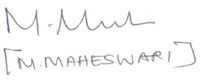 M. Mah
[M. MAHESWARI]